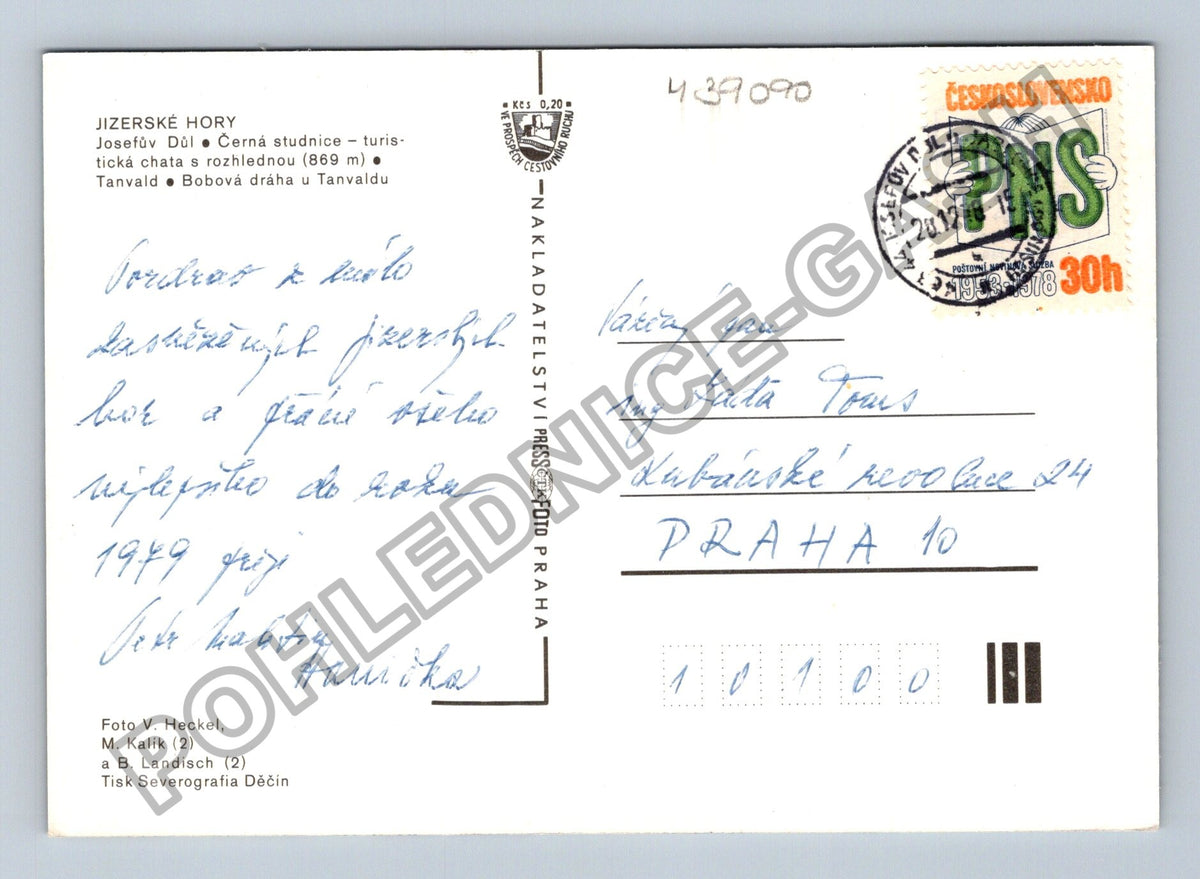 JIZERSKÉ HORY
Josefův Důl • Černá studnice – turis-
tická chata s rozhlednou (869 m) •
Tanvald • Bobová dráha u Tanvaldu
Pozdrav z málo
zasněžených jizerských
hor a přání všeho
nejlepšího do roku
1979 přejí
Petr
Hanička
Foto V. Heckel,
M. Kalík (2)
a B. Landisch (2)
Tisk Severografia Děčín
Kčs 0,20
VE PROSPĚCH CESTOVNÍHO RUCHU
NAKLADATELSTVÍ PRESSFOTO PRAHA
439090
ČESKOSLOVENSKO
PNS
POŠTOVNÍ NOVINOVÁ SLUŽBA
1953-1978 30h
468 44 JOSEFŮV DŮL
28.12.78-15
Vážený pan
ing Toms
Kubánské revoluce 24
PRAHA 10
10100
POHLEDNICE-GASH